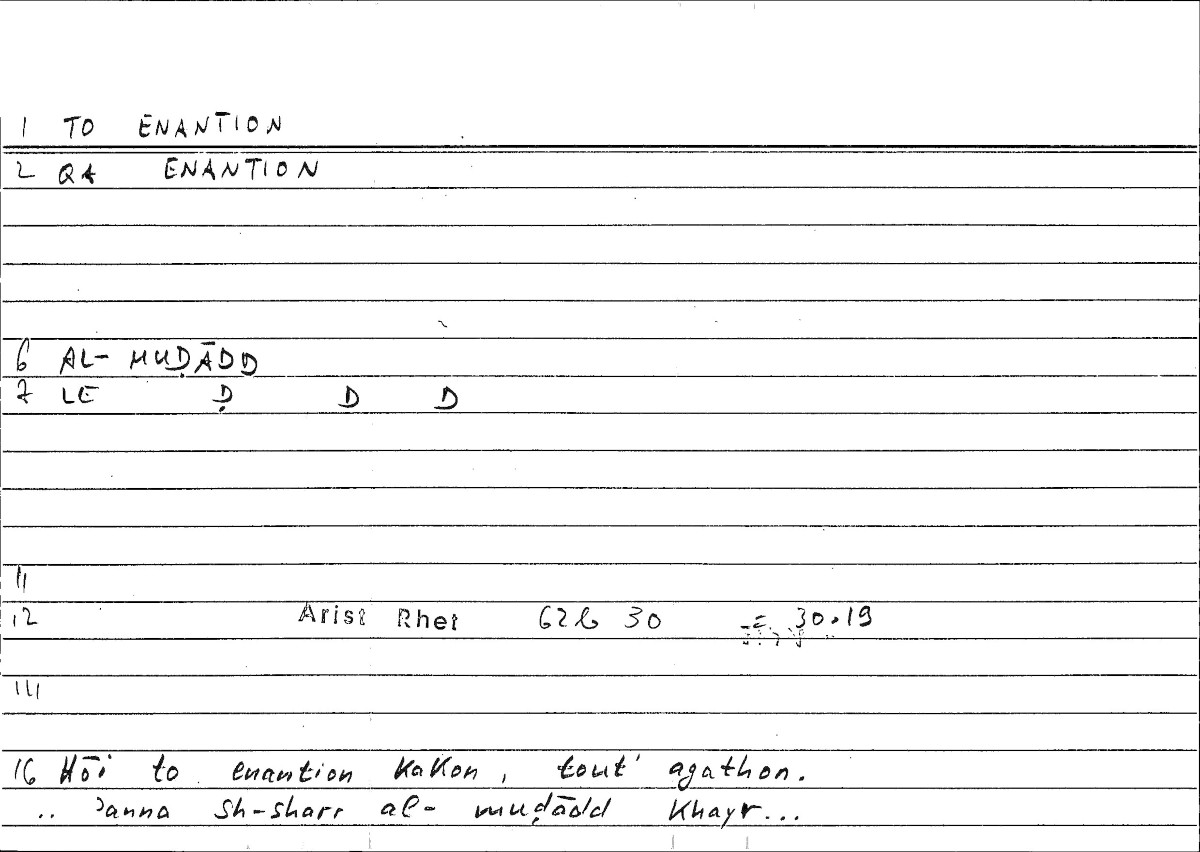 1 TO ENANTION
2 QA ENANTION
6 AL- MUḌĀDD
7 LE Ḍ D D
11
12 Arist Rhet 62b 30 = 30.19
16 Hōi to enantion kakon, tout' agathon.
.. ʾanna sh-sharr al- muḍādd khayr...